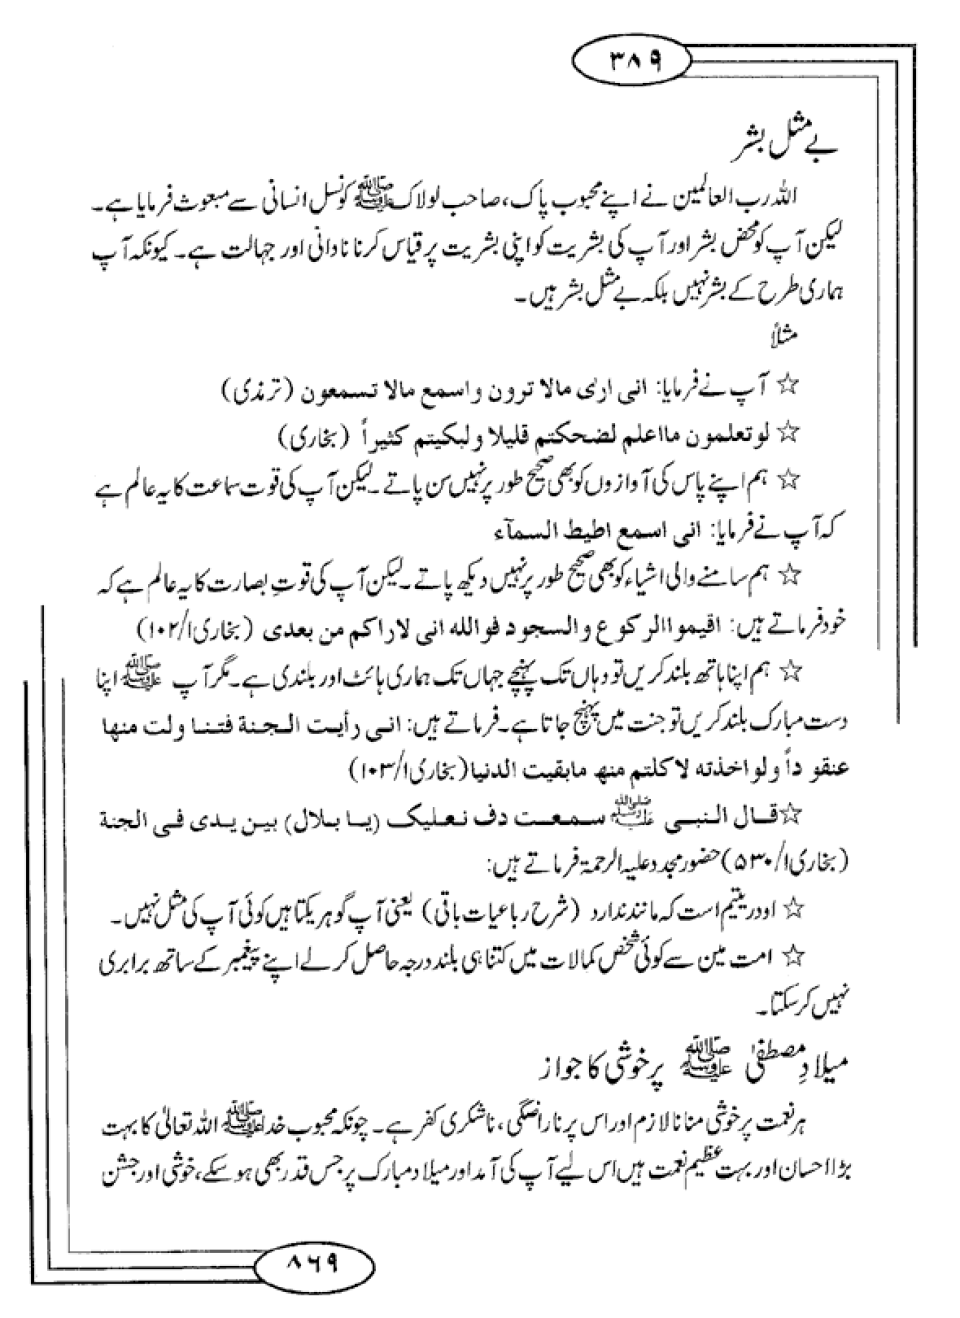 ۳۸۹
بے مثل بشر
اللہ رب العالمین نے اپنے محبوب پاک، صاحب لولاک ﷺ کو نسل انسانی سے مبعوث فرمایا ہے۔
لیکن آپ کو محض بشر اور آپ کی بشریت کو اپنی بشریت پر قیاس کرنا نادانی اور جہالت ہے۔ کیونکہ آپ
ہماری طرح کے بشر نہیں بلکہ بے مثل بشر ہیں۔
مثلاً
☆ آپ نے فرمایا: انی اری مالا ترون واسمع مالا تسمعون (ترمذی)
☆ لو تعلمون مااعلم لضحکتم قلیلا ولبکیتم کثیراً (بخاری)
☆ ہم اپنے پاس کی آوازوں کو بھی صحیح طور پر نہیں سن پاتے۔ لیکن آپ کی قوت سماعت کا یہ عالم ہے
کہ آپ نے فرمایا: انی اسمع اطیط السمآء
☆ ہم سامنے والی اشیاء کو بھی صحیح طور پر نہیں دیکھ پاتے۔ لیکن آپ کی قوتِ بصارت کا یہ عالم ہے کہ
خود فرماتے ہیں: اقیمواالرکوع والسجود فوالله انی لاراکم من بعدی (بخاری۱/۱۰۲)
☆ ہم اپنا ہاتھ بلند کریں تو وہاں تک پہنچے جہاں تک ہماری ہائٹ اور بلندی ہے۔ مگر آپ ﷺ اپنا
دست مبارک بلند کریں تو جنت میں پہنچ جاتا ہے۔ فرماتے ہیں: انی رأیت الجنة فتناولت منها
عنقوداً ولو اخذته لاکلتم منھ مابقیت الدنیا (بخاری۱/۱۰۳)
☆قال النبی ﷺ سمعت دف نعلیک (یا بلال) بین یدی فی الجنة
(بخاری۱/۵۳۰) حضور مجدد علیہ الرحمۃ فرماتے ہیں:
☆ اودریتیم است کہ مانند ندارد (شرح رباعیات باقی) یعنی آپ گوہر یکتا ہیں کوئی آپ کی مثل نہیں۔
☆ امت مین سے کوئی شخص کمالات میں کتنا ہی بلند درجہ حاصل کرلے اپنے پیغمبر کے ساتھ برابری
نہیں کرسکتا۔
میلادِ مصطفیٰ ﷺ پر خوشی کا جواز
ہر نعمت پر خوشی منانا لازم اور اس پر ناراضگی، ناشکری کفر ہے۔ چونکہ محبوب خدا ﷺ اللہ تعالیٰ کا بہت
بڑا احسان اور بہت عظیم نعمت ہیں اس لیے آپ کی آمد اور میلاد مبارک پر جس قدر بھی ہو سکے، خوشی اور جشن
۸۶۹